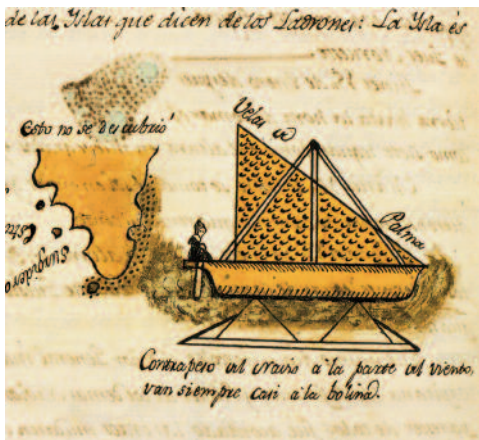 de las Yslas que dicen de los Ladrones: La Ysla és
Esto no se descubrió
Velas d
Palma
Surgidero
Contrapeso del Navio a la parte del viento,
van siempre casi a la bolina.